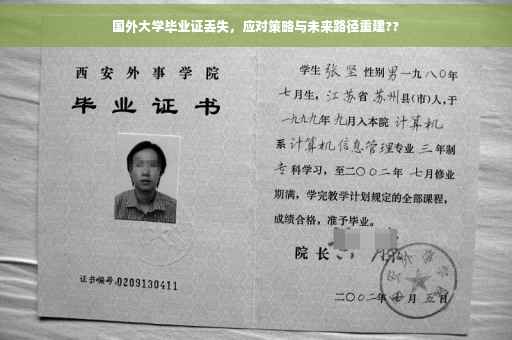 国外大学毕业证丢失，应对策略与未来路径重建??
西安外事学院
毕业证书
证书编号:0209130411
学生 张坚 性别男一九八〇年
七月生，江苏省苏州县(市)人，于
一九九九年九月入本院 计算机
系 计算机信息管理专业 三年制
专科学习，至二〇〇二年 七月修业
期满，学完教学计划规定的全部课程，
成绩合格，准予毕业。
院长
二〇〇二年 月五日